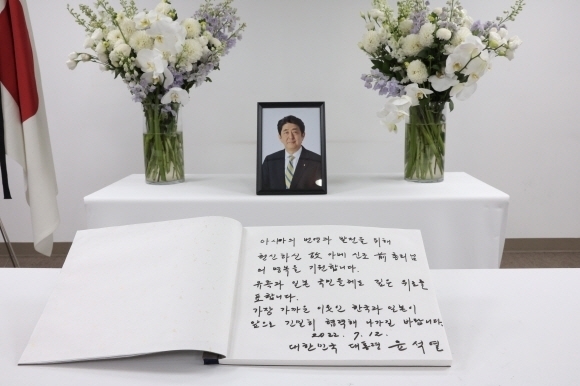 아시아의 번영과 발전을 위해
헌신하신 故 아베 신조 前 총리님
의 명복을 기원합니다.
유족과 일본 국민들께도 깊은 위로를
표합니다.
가장 가까운 이웃인 한국과 일본이
앞으로 긴밀히 협력해 나가길 바랍니다.
2022. 7. 12.
대한민국 대통령 윤석열